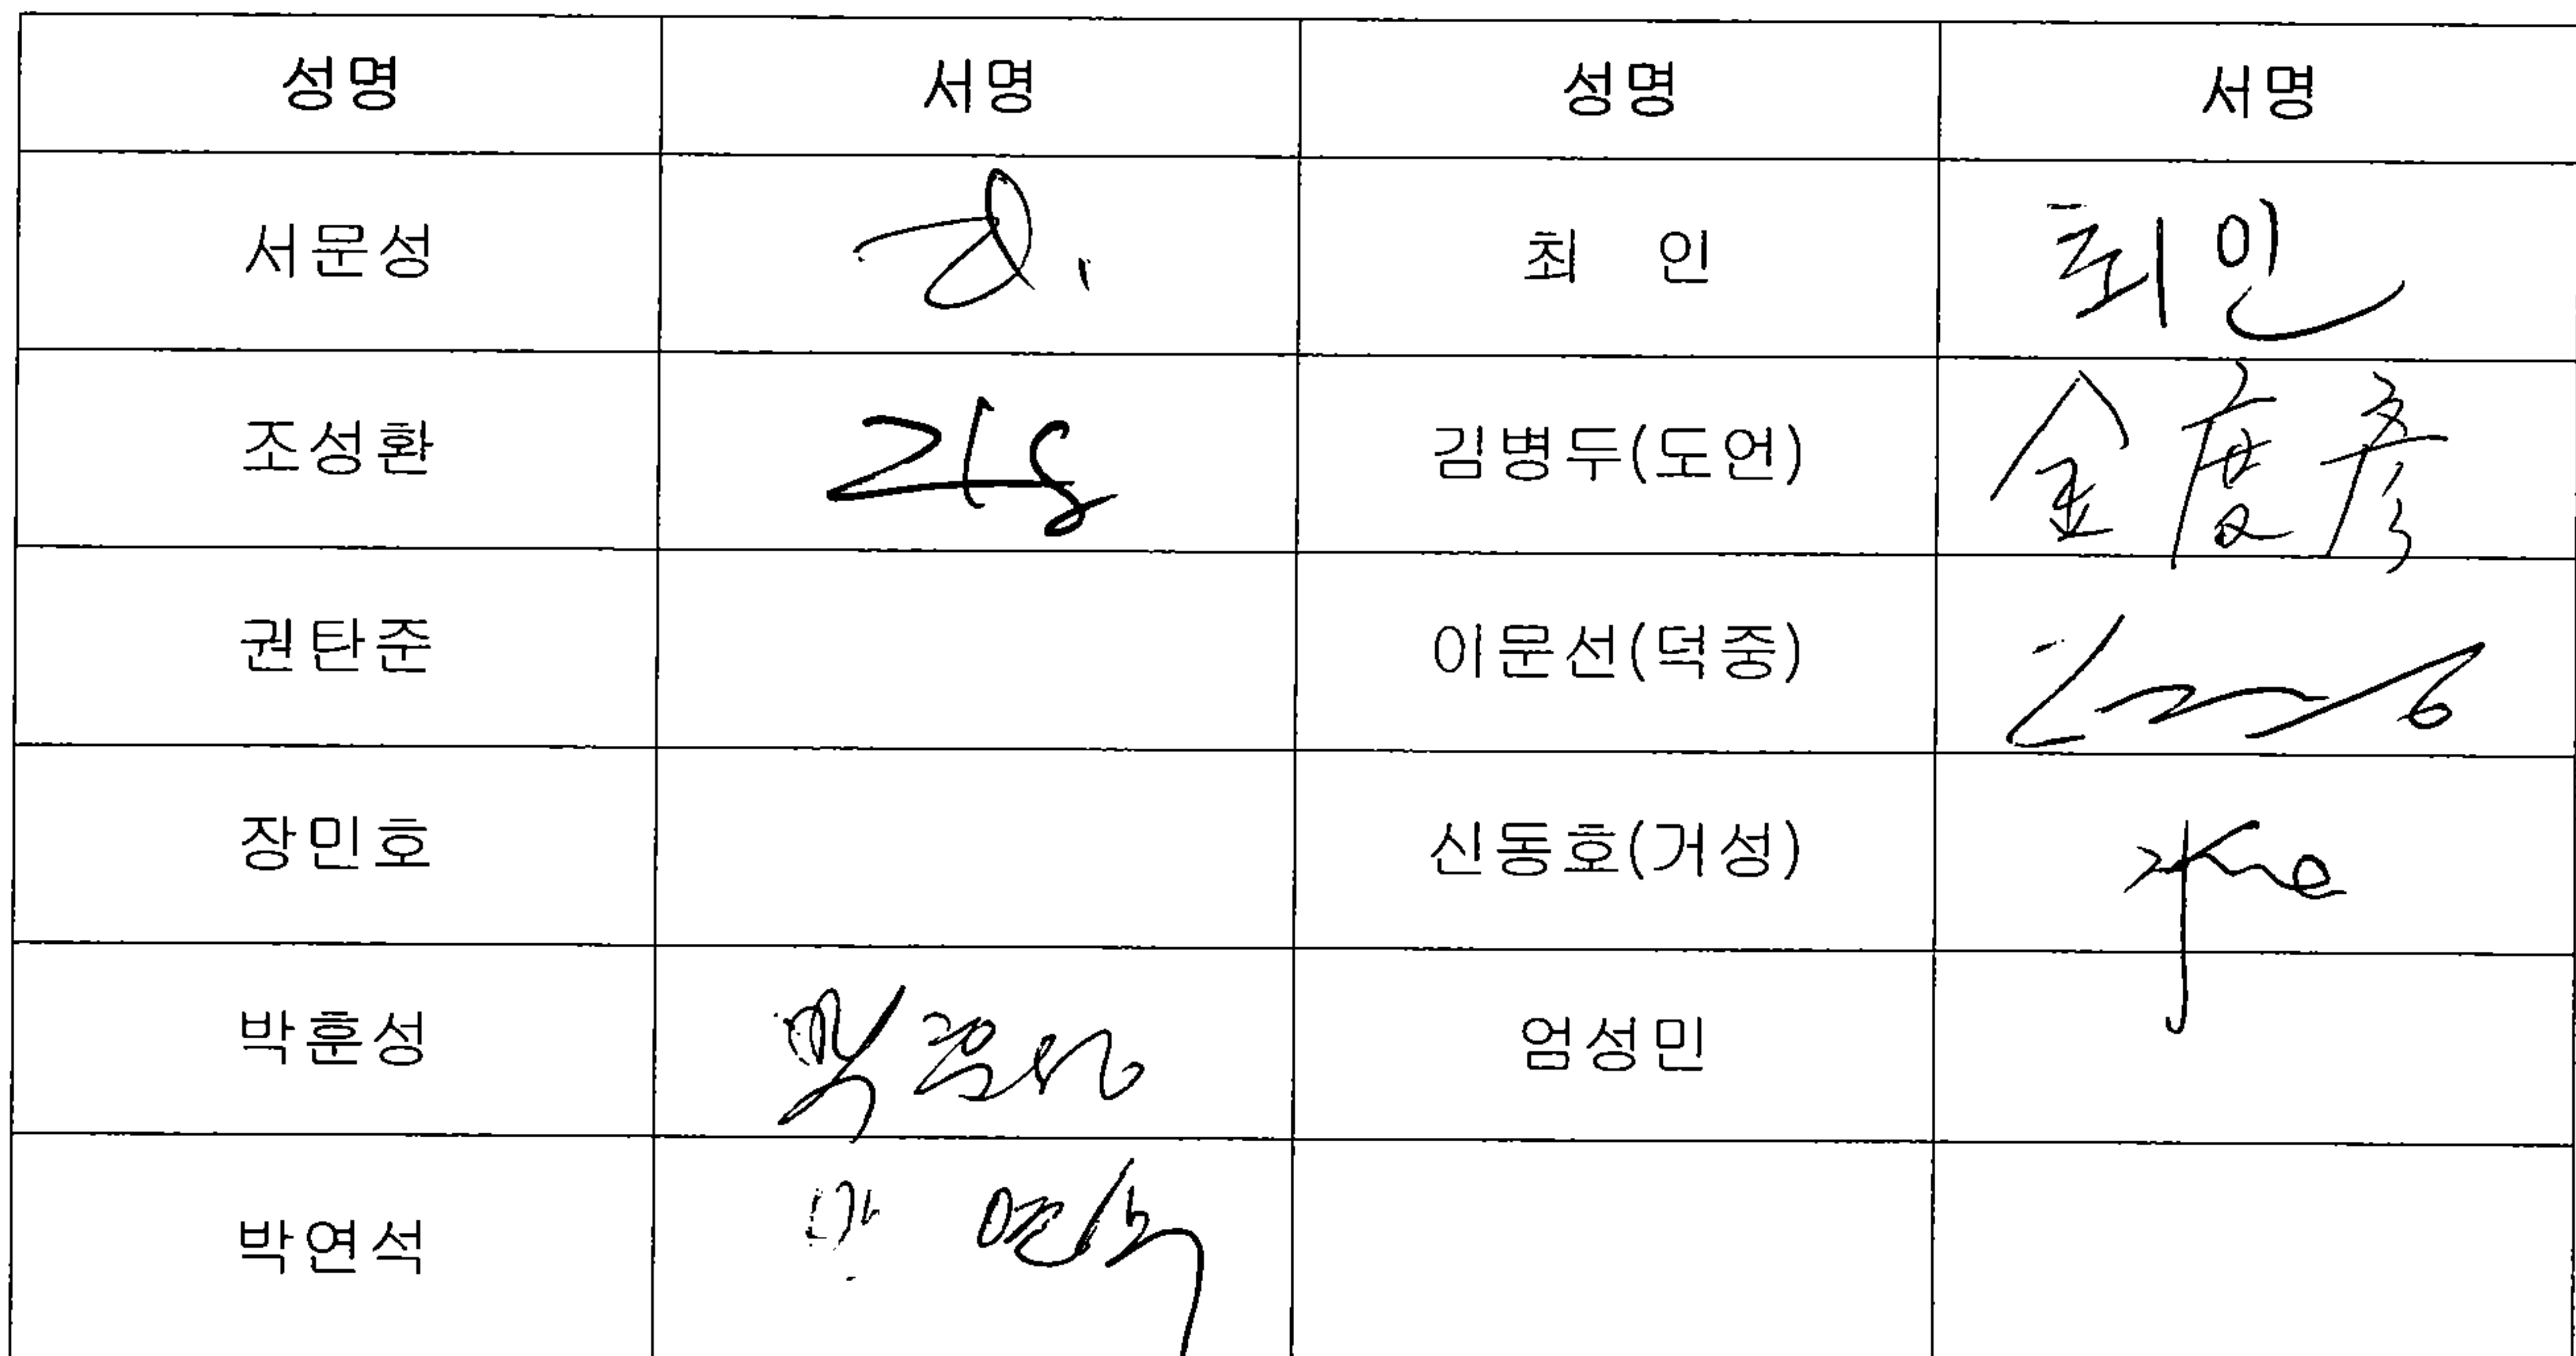 성명 서명 성명 서명
서문성 최 인 최인
조성환 김병두(도언) 金度彦
권탄준 이문선(덕중)
장민호 신동호(거성)
박훈성 박훈성 엄성민
박연석 박연석